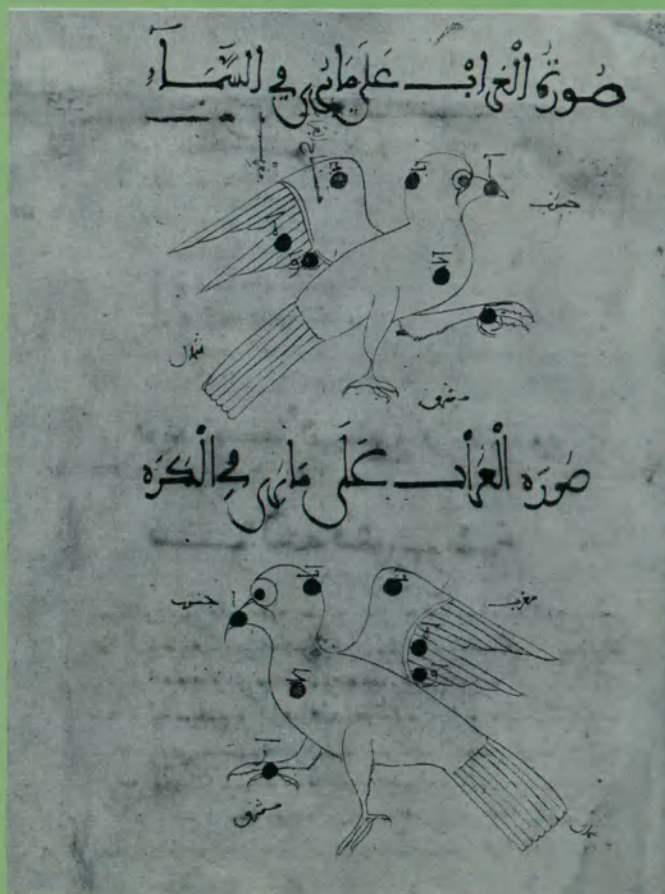 صُورَةُ الْغُرَابْ عَلَى مَا يُرَى فِي السَّمَآءِ
جنوب
شمال
مشرق
صُورَه الْغُرَاب عَلَى مَا يُرَى فِي الْكَرَه
جنوب
مغرب
مشرق
شمال